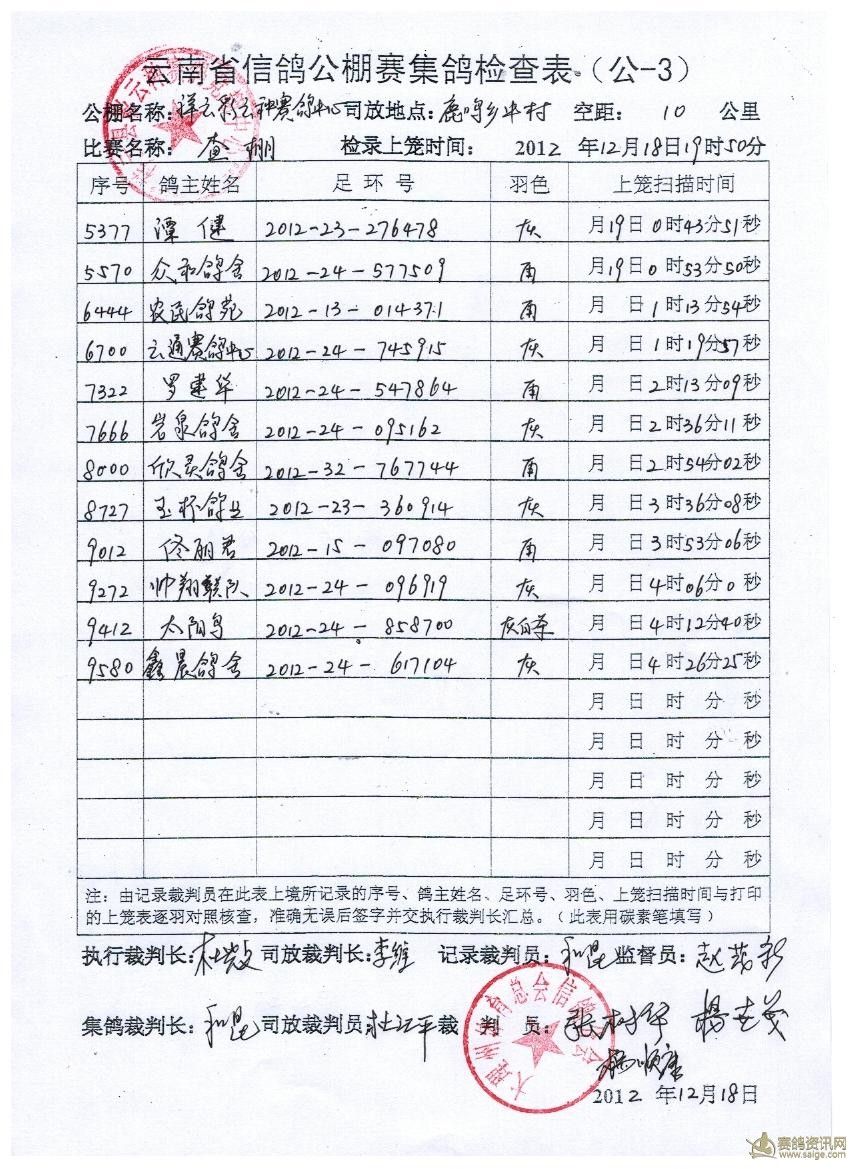 云南省信鸽公棚赛集鸽检查表（公-3）
公棚名称：祥云彩云神赛鸽中心 司放地点：鹿鸣乡半村 空距： 10 公里
比赛名称： 查棚 检录上笼时间： 2012 年12月18日19时50分
序号 鸽主姓名 足环号 羽色 上笼扫描时间
5377 潭健 2012-23-276478 灰 月19日0时43分51秒
5570 众和鸽舍 2012-24-577509 雨 月19日0时53分50秒
6444 农民鸽苑 2012-13-014371 雨 月 日1时13分54秒
6700 云通赛鸽中心 2012-24-745915 灰 月 日1时19分57秒
7322 罗建华 2012-24-547864 雨 月 日2时13分09秒
7666 岩泉鸽舍 2012-24-095162 灰 月 日2时36分11秒
8000 欣灵鸽舍 2012-32-767744 雨 月 日2时54分02秒
8727 玉杯鸽业 2012-23-360914 灰 月 日3时36分08秒
9012 佟丽君 2012-15-097080 雨 月 日3时53分06秒
9272 帅翔联队 2012-24-096919 灰 月 日4时06分0秒
9412 太阳鸟 2012-24-858700 灰白条 月 日4时12分40秒
9580 鑫晨鸽舍 2012-24-617104 灰 月 日4时26分25秒
月 日 时 分 秒
月 日 时 分 秒
月 日 时 分 秒
月 日 时 分 秒
月 日 时 分 秒
注：由记录裁判员在此表上境所记录的序号、鸽主姓名、足环号、羽色、上笼扫描时间与打印
的上笼表逐羽对照核查，准确无误后签字并交执行裁判长汇总。（此表用碳素笔填写）
执行裁判长： 司放裁判长：李维 记录裁判员：和昆 监督员：
集鸽裁判长：和昆 司放裁判员：杜江平 裁判员：张树华
杨顺唐
大理州体育总会信鸽
2012 年12月18日
赛鸽资讯网
www.saige.com